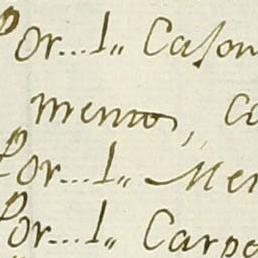 Por...1,, Cason
menos, ca
Por...1,, Men
Por...1,, Carpe